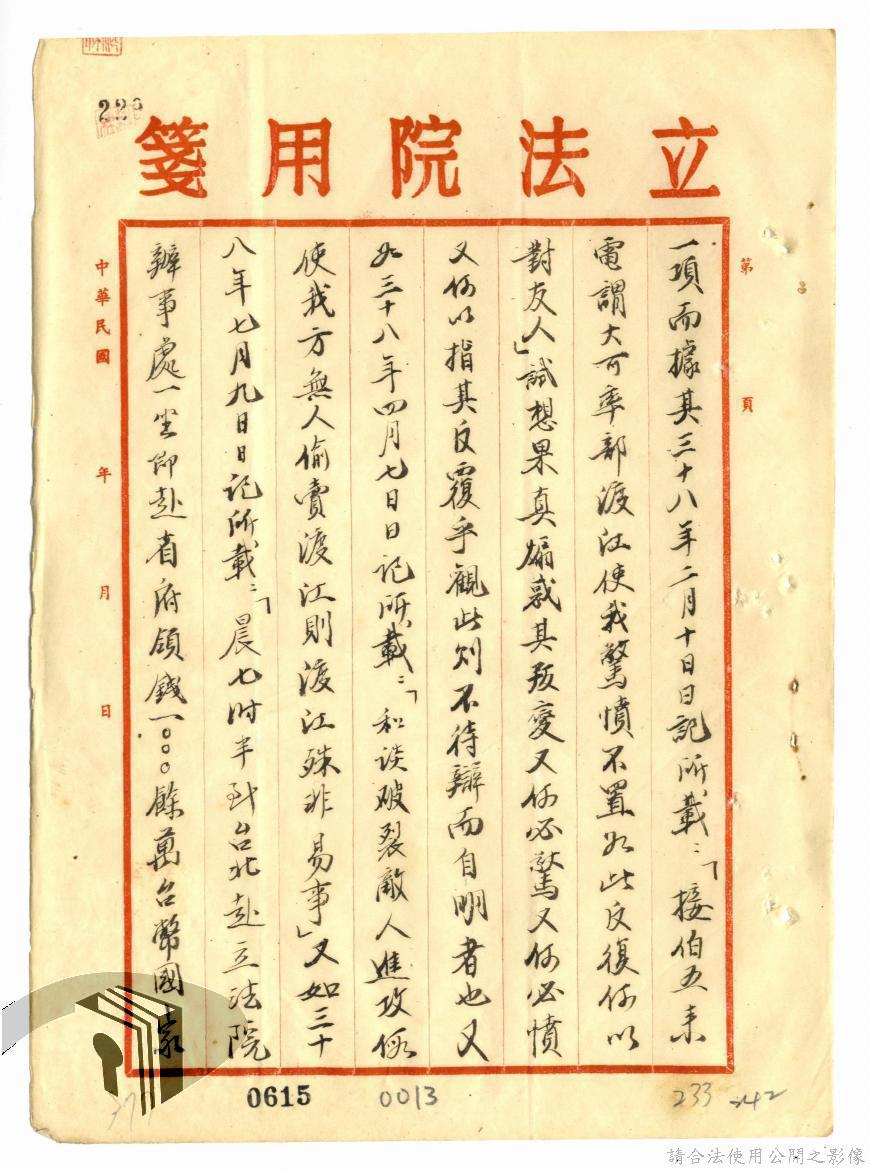 立法院用箋
第　頁
一項而據其三十八年二月十日日記所載：「接伯五來
電謂大可率部渡江使我驚憤不置如此反復何以
對友人」試想果真煽惑其叛變又何必驚又何必憤
又何以指其反覆乎觀此則不待辯而自明者也又
如三十八年四月七日日記所載：「和談破裂敵人進攻假
使我方無人偷賣渡江則渡江殊非易事」又如三十
八年七月九日日記所載：「晨七時半到台北赴立法院
辦事處一坐即赴省府領錢一〇〇〇餘萬台幣國家
中華民國　年　月　日
0615
0013
233
242
請合法使用公開之影像